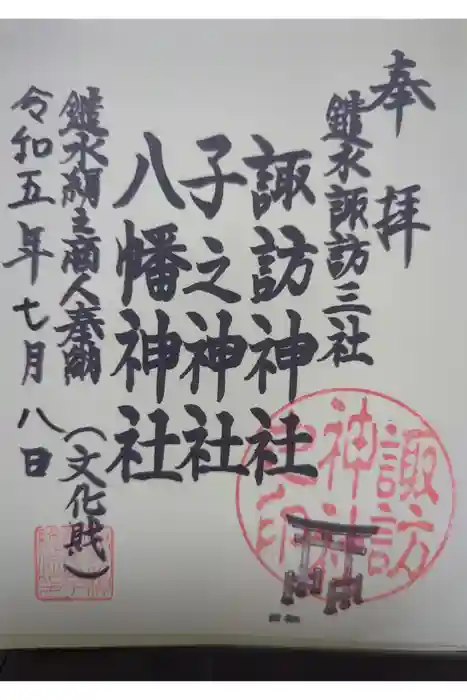 奉拝
鑓水諏訪三社
諏訪神社
子之神社
八幡神社
鑓水絹之商人奉納(文化財)
令和五年七月八日
諏訪
神社
之印